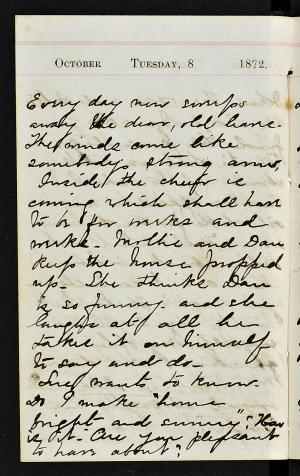 October Tuesday, 8 1872.
Every day now sweeps
away the dear, old leaves.
The winds come like
somebody's strong arms,
Inside the cheer is
coming which shall have
to be for weeks and
weeks. Mollie and Dan
keep the house propped
up. She thinks Dan
is so funny and she
laughs at all he
takes it on himself
to say and do.
She wants to know
do I make "home
bright and sunny"? How
is it. Are you pleasant
to have about?